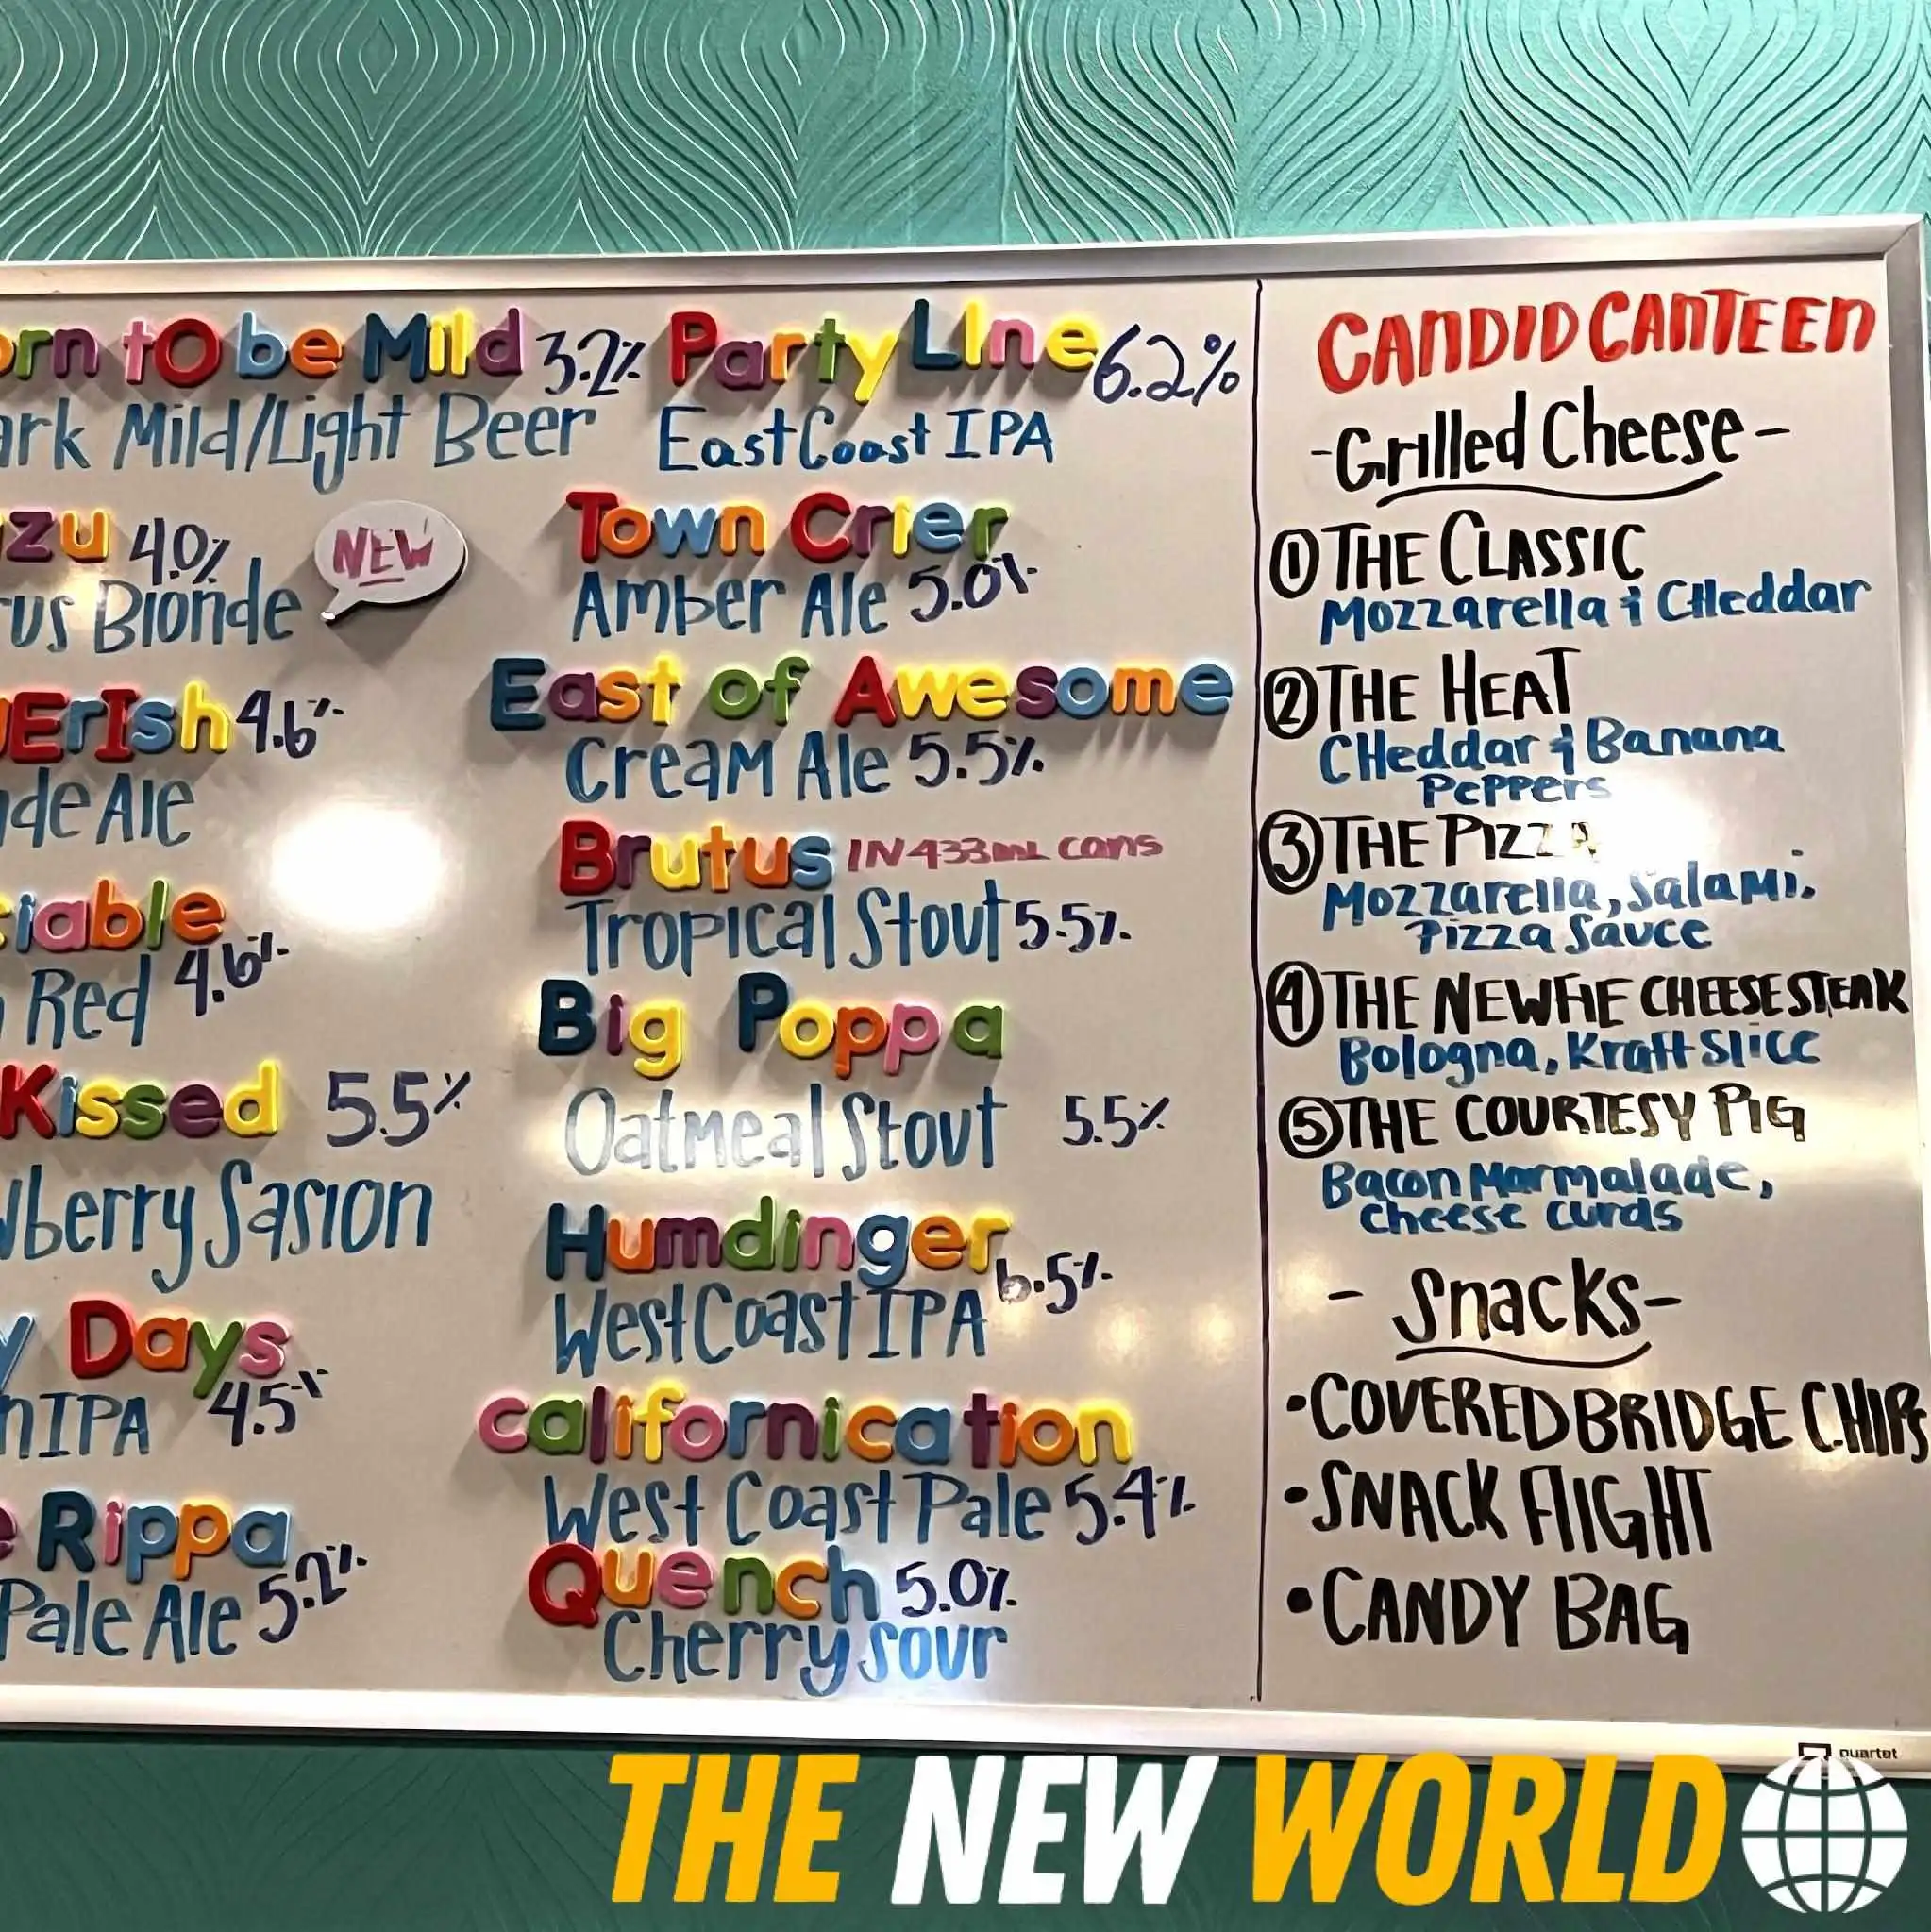 orn tO be Mild 3.2%
ark Mild/Light Beer
zu 4.0%
NEW
rus Blonde
ErIsh 4.6%
de Ale
iable
Red 4.6%
Kissed 5.5%
wberry Sasion
y Days
nIPA 4.5%
Rippa
Pale Ale 5.2%
Party LIne 6.2%
East Coast IPA
Town Crier
Amber Ale 5.0%
East of Awesome
Cream Ale 5.5%
Brutus IN 433mL cans
Tropical Stout 5.5%
Big Poppa
Oatmeal Stout 5.5%
Humdinger
West Coast IPA 6.5%
californication
West Coast Pale 5.4%
Quench 5.0%
Cherry Sour
CANDID CANTEEN
-Grilled Cheese-
① THE CLASSIC
Mozzarella & CHeddar
② THE HEAT
CHeddar & Banana
Peppers
③ THE PIZZA
Mozzarella, Salami,
Pizza Sauce
④ THE NEWFIE CHEESESTEAK
Bologna, Kraft Slice
⑤ THE COURTESY PIG
Bacon Marmalade,
cheese curds
- Snacks-
•COVERED BRIDGE CHIPS
•SNACK FlIGHT
•CANDY BAG
quartet
THE NEW WORLD